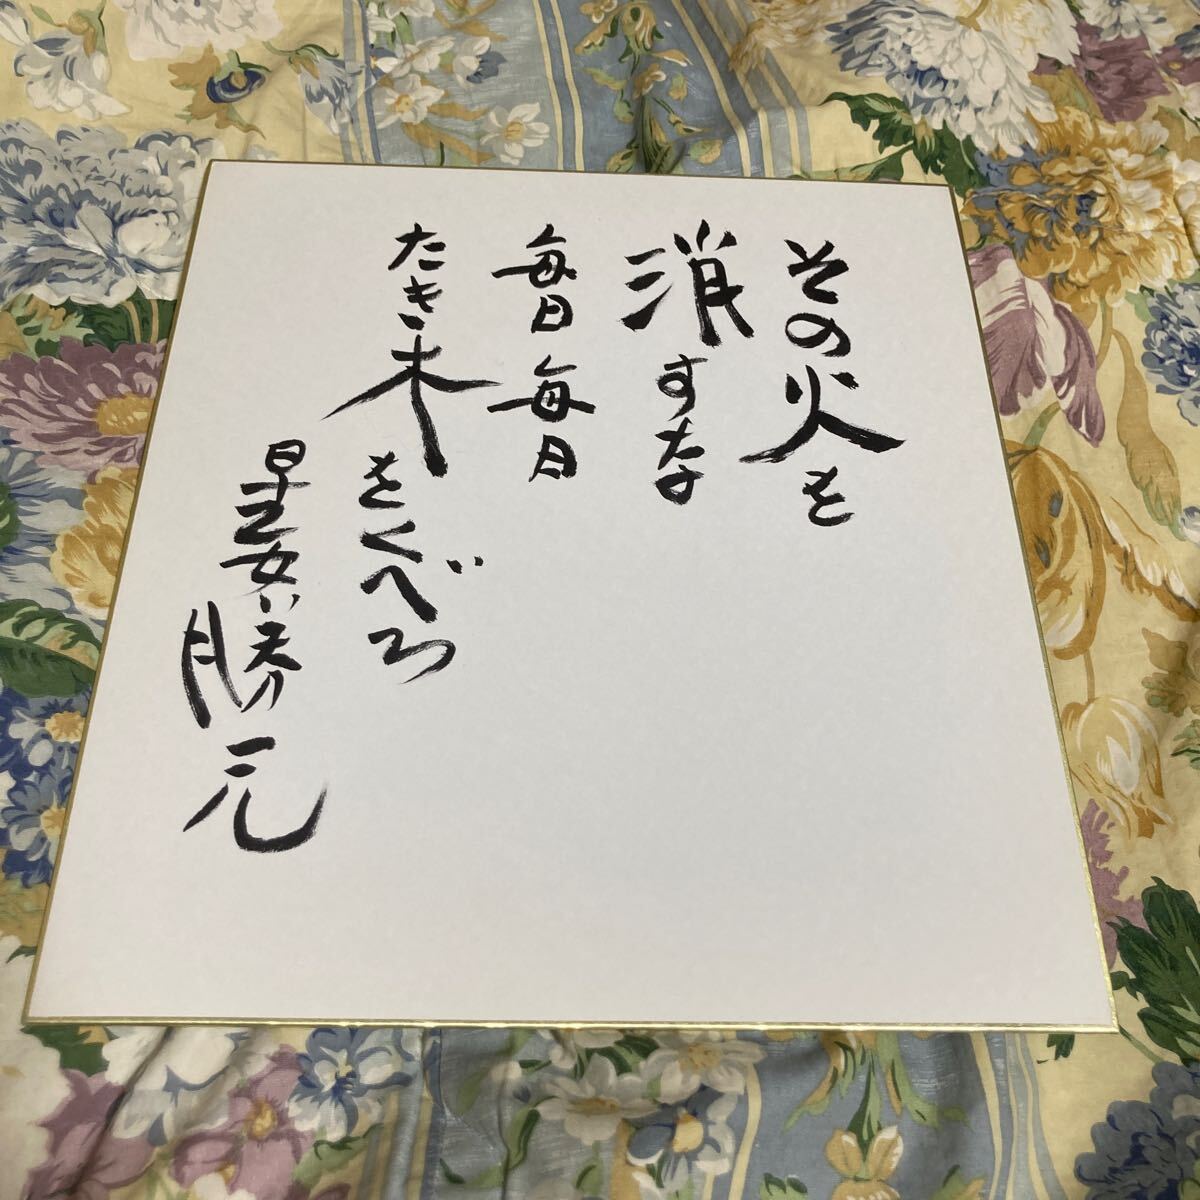 その火を
消すな
毎日毎日
たき木をくべろ
星安勝元